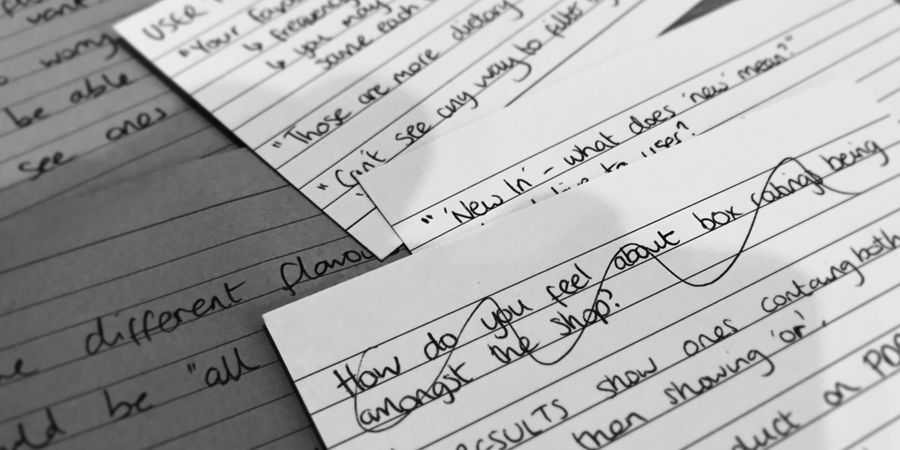 want
worry
be able
see ones
different flavou
be "all
USER
"Your favou
↳ frequency
↳ you may
same each
"Those are more dietary
"Can't see any way to filter
"'New In' - what does 'new' mean?"
to user?
How do you feel about box ratings being
amongst the shop?
RESULTS show ones containg both
then showing 'or'.
duct on PDP